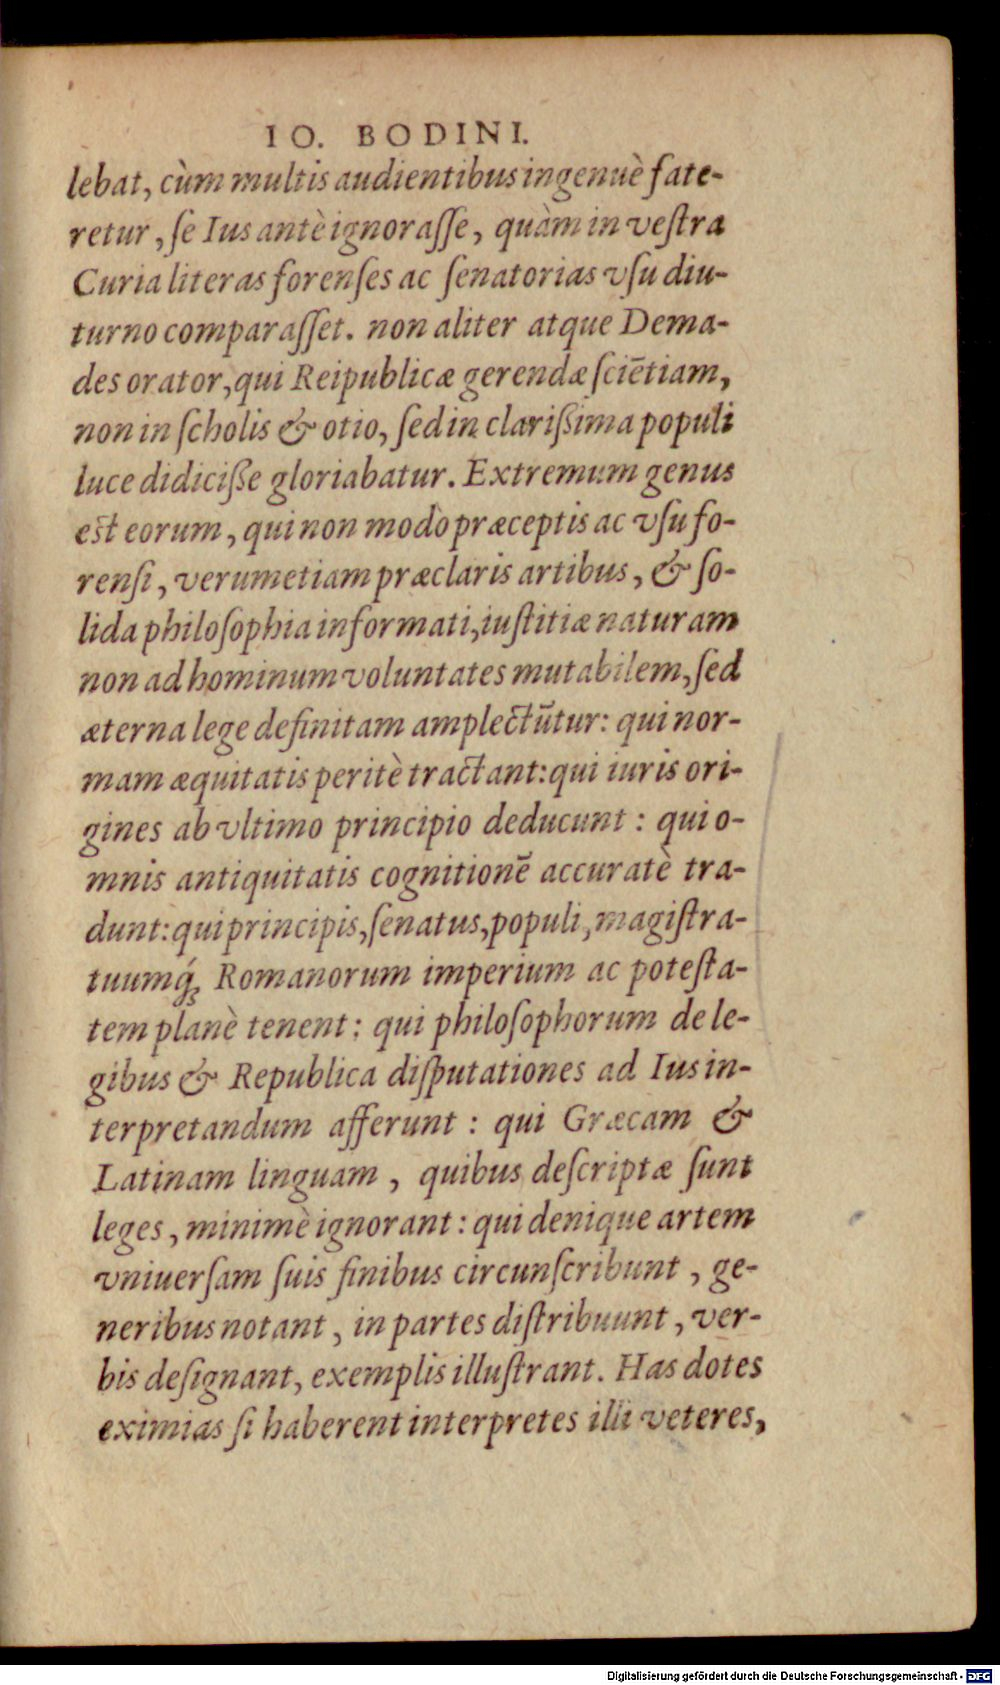 IO. BODINI.
lebat, cùm multis audientibus ingenuè fate-
retur, ſe Ius antè ignoraſſe, quàm in veſtra
Curia literas forenſes ac ſenatorias vſu diu-
turno comparaſſet. non aliter atque Dema-
des orator, qui Reipublicæ gerendæ ſciẽtiam,
non in ſcholis & otio, ſed in clariſſima populi
luce didiciſſe gloriabatur. Extremum genus
est eorum, qui non modò præceptis ac vſu fo-
renſi, verumetiam præclaris artibus, & ſo-
lida philoſophia informati, iuſtitiæ naturam
non ad hominum voluntates mutabilem, ſed
æterna lege definitam amplectũtur: qui nor-
mam æquitatis peritè tractant: qui iuris ori-
gines ab vltimo principio deducunt : qui o-
mnis antiquitatis cognitionẽ accuratè tra-
dunt: qui principis, ſenatus, populi, magiſtra-
tuumq́; Romanorum imperium ac poteſta-
tem planè tenent: qui philoſophorum de le-
gibus & Republica diſputationes ad Ius in-
terpretandum afferunt : qui Græcam &
Latinam linguam , quibus deſcriptæ ſunt
leges, minimè ignorant : qui denique artem
vniuerſam ſuis finibus circunſcribunt, ge-
neribus notant, in partes diſtribuunt, ver-
bis deſignant, exemplis illuſtrant. Has dotes
eximias ſi haberent interpretes illi veteres,
Digitalisierung gefördert durch die Deutsche Forschungsgemeinschaft - DFG